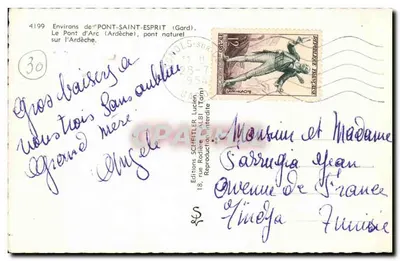 4199 Environs de PONT-SAINT-ESPRIT (Gard).
Le Pont d'Arc (Ardèche), pont naturel
sur l'Ardèche.
30
Gros baisers a
vous trois sans oublier
Grand mère
Angèle
Editions SCHEITLER Lucien
18, rue Rodière ALBI (Tarn)
Reproduction interdite
REPUBLIQUE FRANÇAISE
Monsieur et Madame
Farrugia Jean
Avenue de France
Tunisie